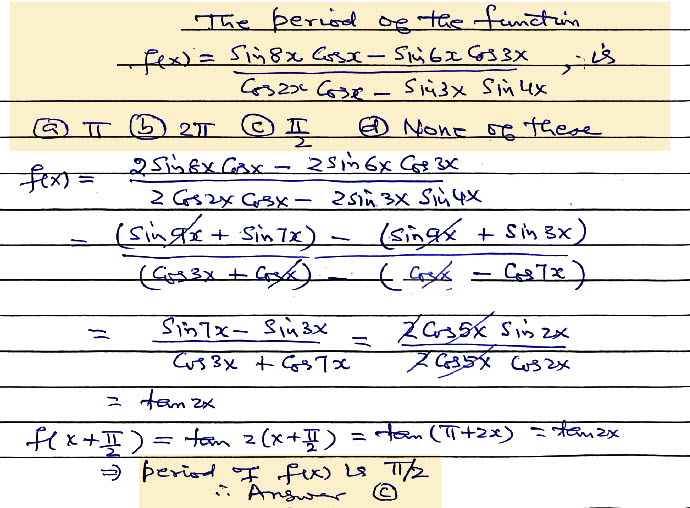 The period of the function
f(x) = (Sin8x Cosx – Sin6x Cos3x) / (Cos2x Cosx – Sin3x Sin4x), is
(a) π (b) 2π (c) π/2 (d) None of these
f(x) = (2Sin8x Cosx – 2Sin6x Cos3x) / (2Cos2x Cosx – 2Sin3x Sin4x)
= ((Sin9x + Sin7x) – (Sin9x + Sin3x)) / ((Cos3x + Cosx) – (Cosx – Cos7x))
= (Sin7x – Sin3x) / (Cos3x + Cos7x) = (2Cos5x Sin2x) / (2Cos5x Cos2x)
= tan2x
f(x + π/2) = tan 2(x + π/2) = tan(π + 2x) = tan2x
⇒ period of f(x) is π/2
∴ Answer (c)